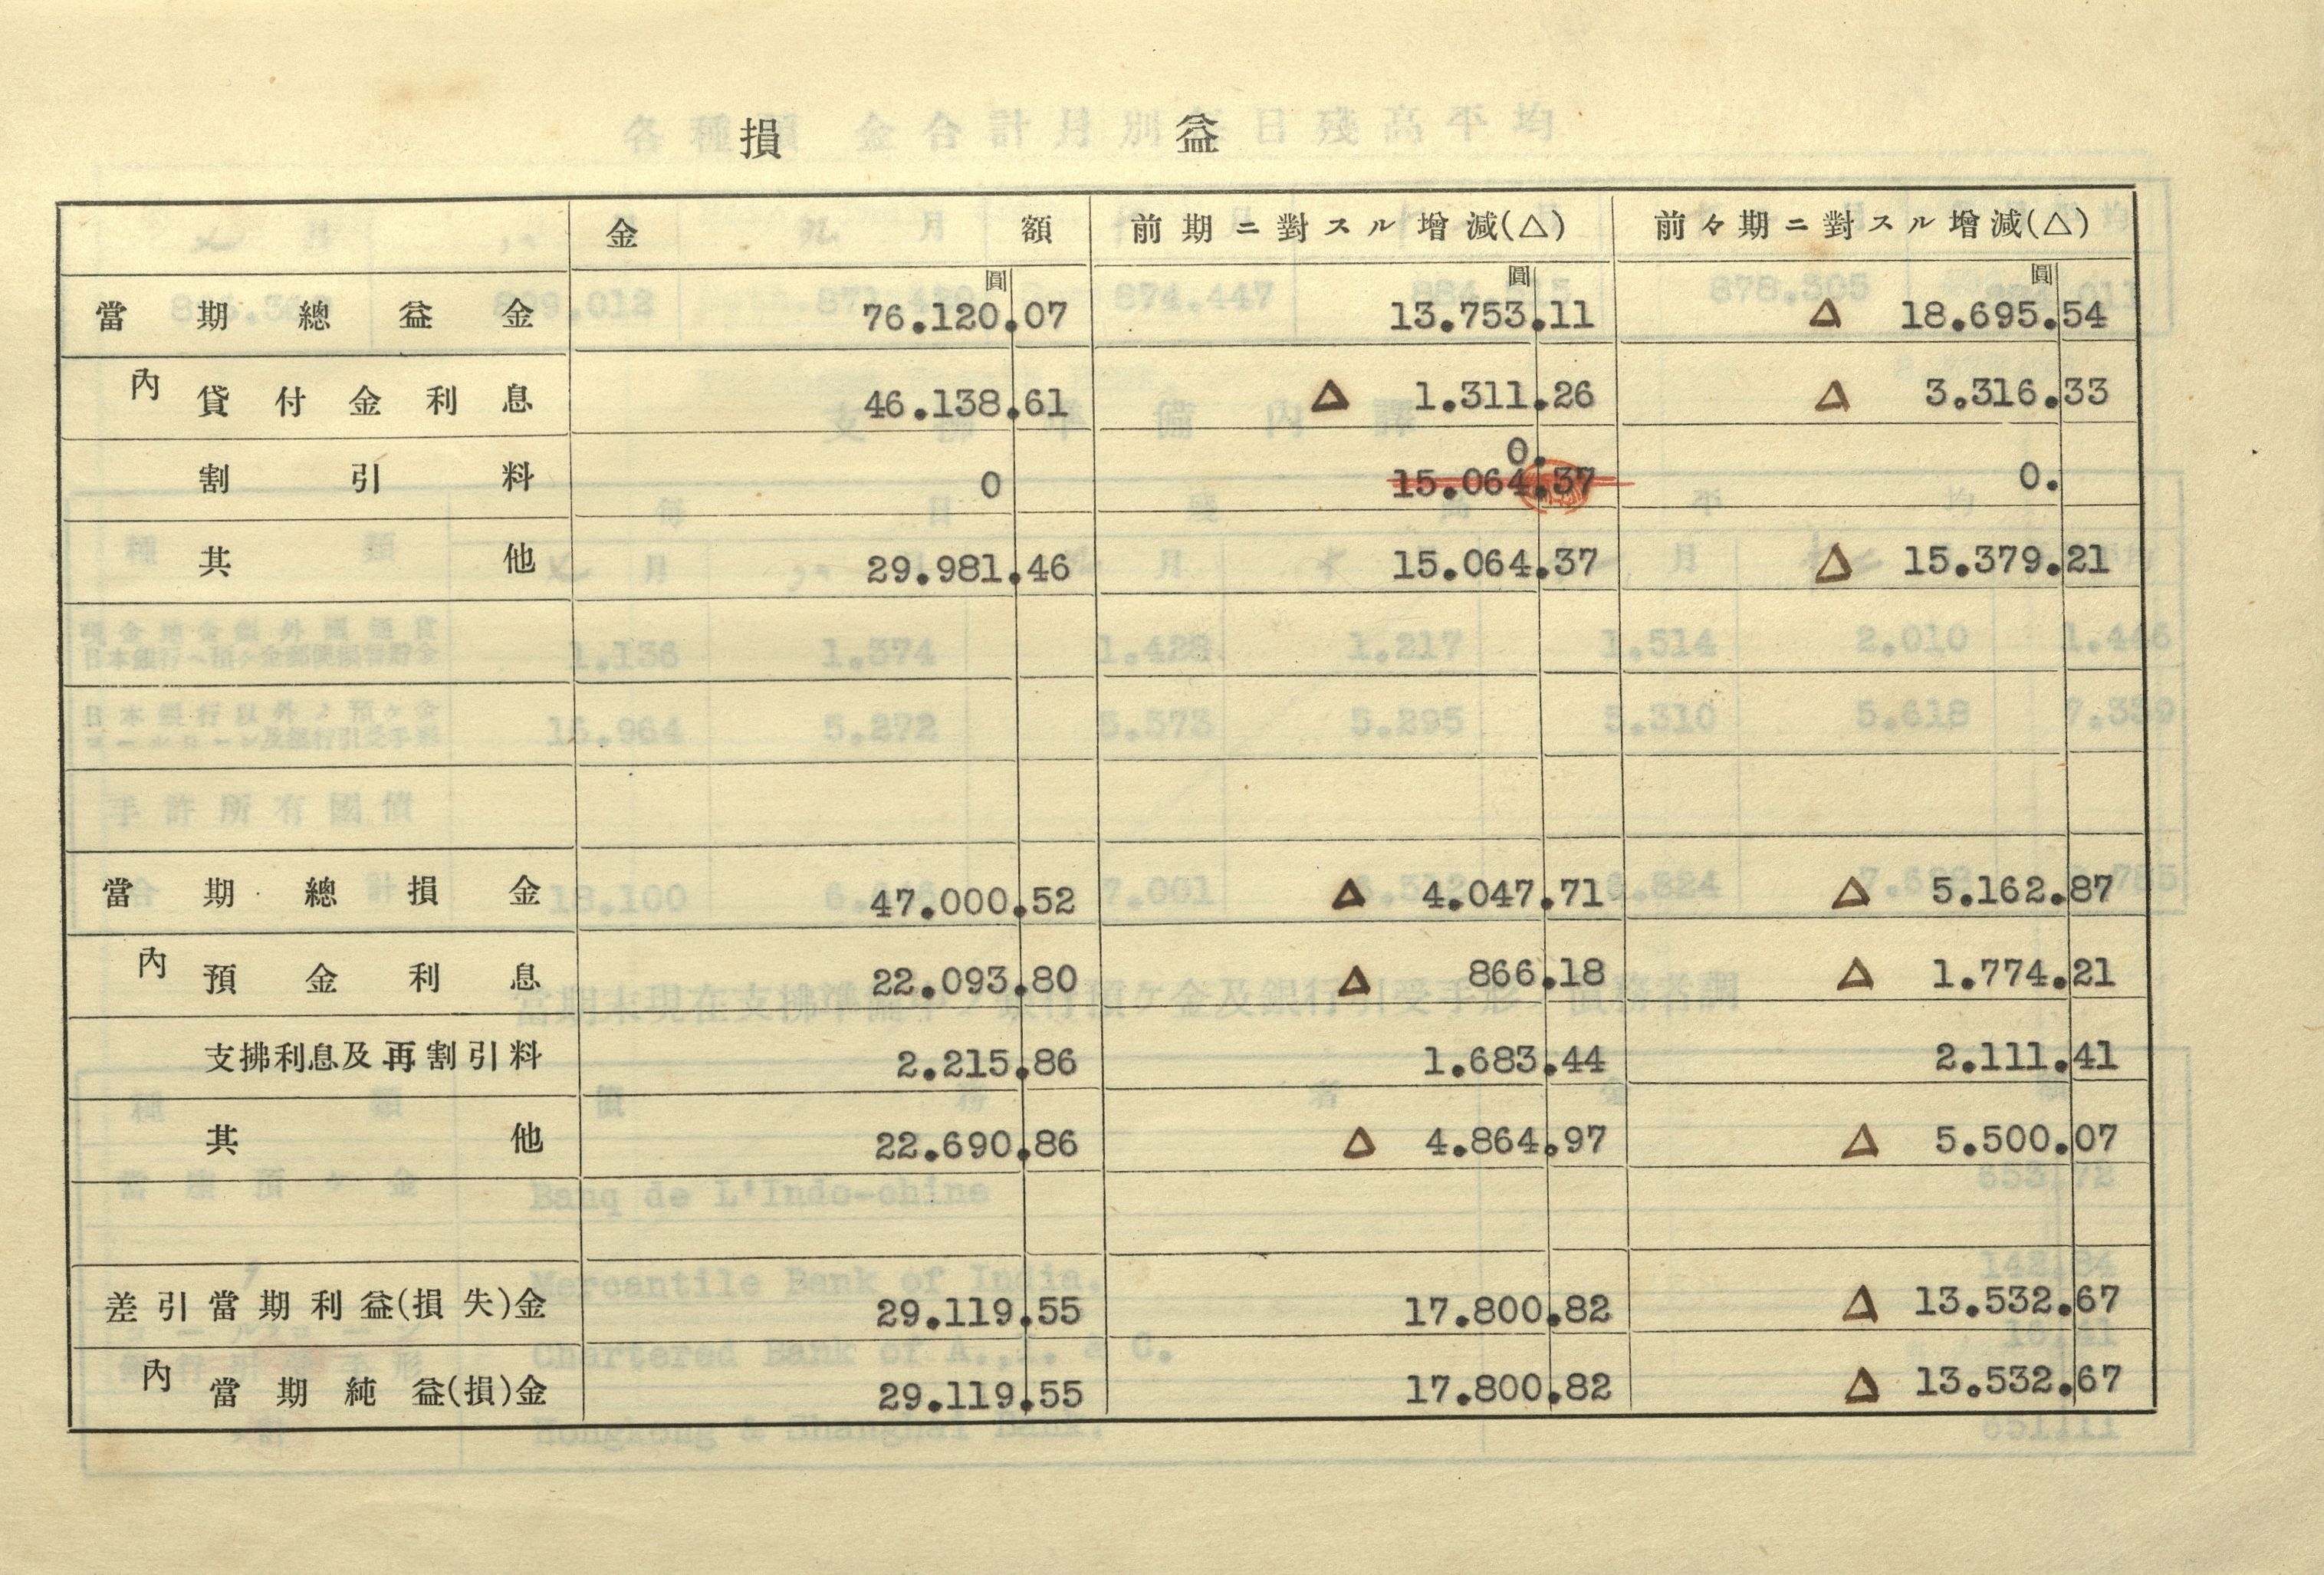 損 益
金額 前期ニ對スル增減(△) 前々期ニ對スル增減(△)
圓 圓 圓
當期總益金 76.120.07 13.753.11 △ 18.695.54
內 貸付金利息 46.138.61 △ 1.311.26 △ 3.316.33
0.
割引料 0 15.064.37 0.
其他 29.981.46 15.064.37 △ 15.379.21
當期總損金 47.000.52 △ 4.047.71 △ 5.162.87
內 預金利息 22.093.80 △ 866.18 △ 1.774.21
支拂利息及再割引料 2.215.86 1.683.44 2.111.41
其他 22.690.86 △ 4.864.97 △ 5.500.07
差引當期利益(損失)金 29.119.55 17.800.82 △ 13.532.67
內 當期純益(損)金 29.119.55 17.800.82 △ 13.532.67